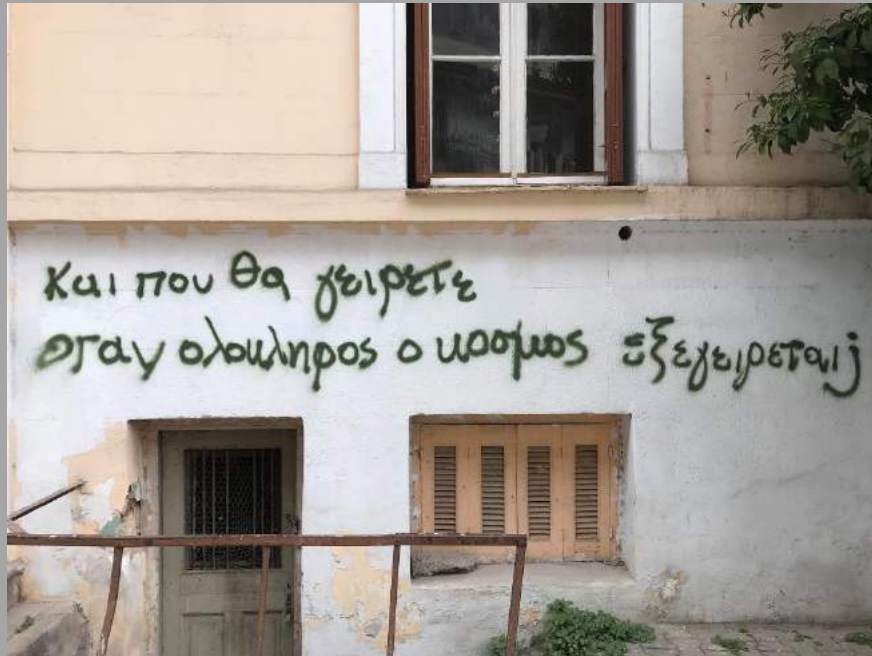 και που θα γειρετε
οταν ολοκληρος ο κοσμος εξεγειρεται;